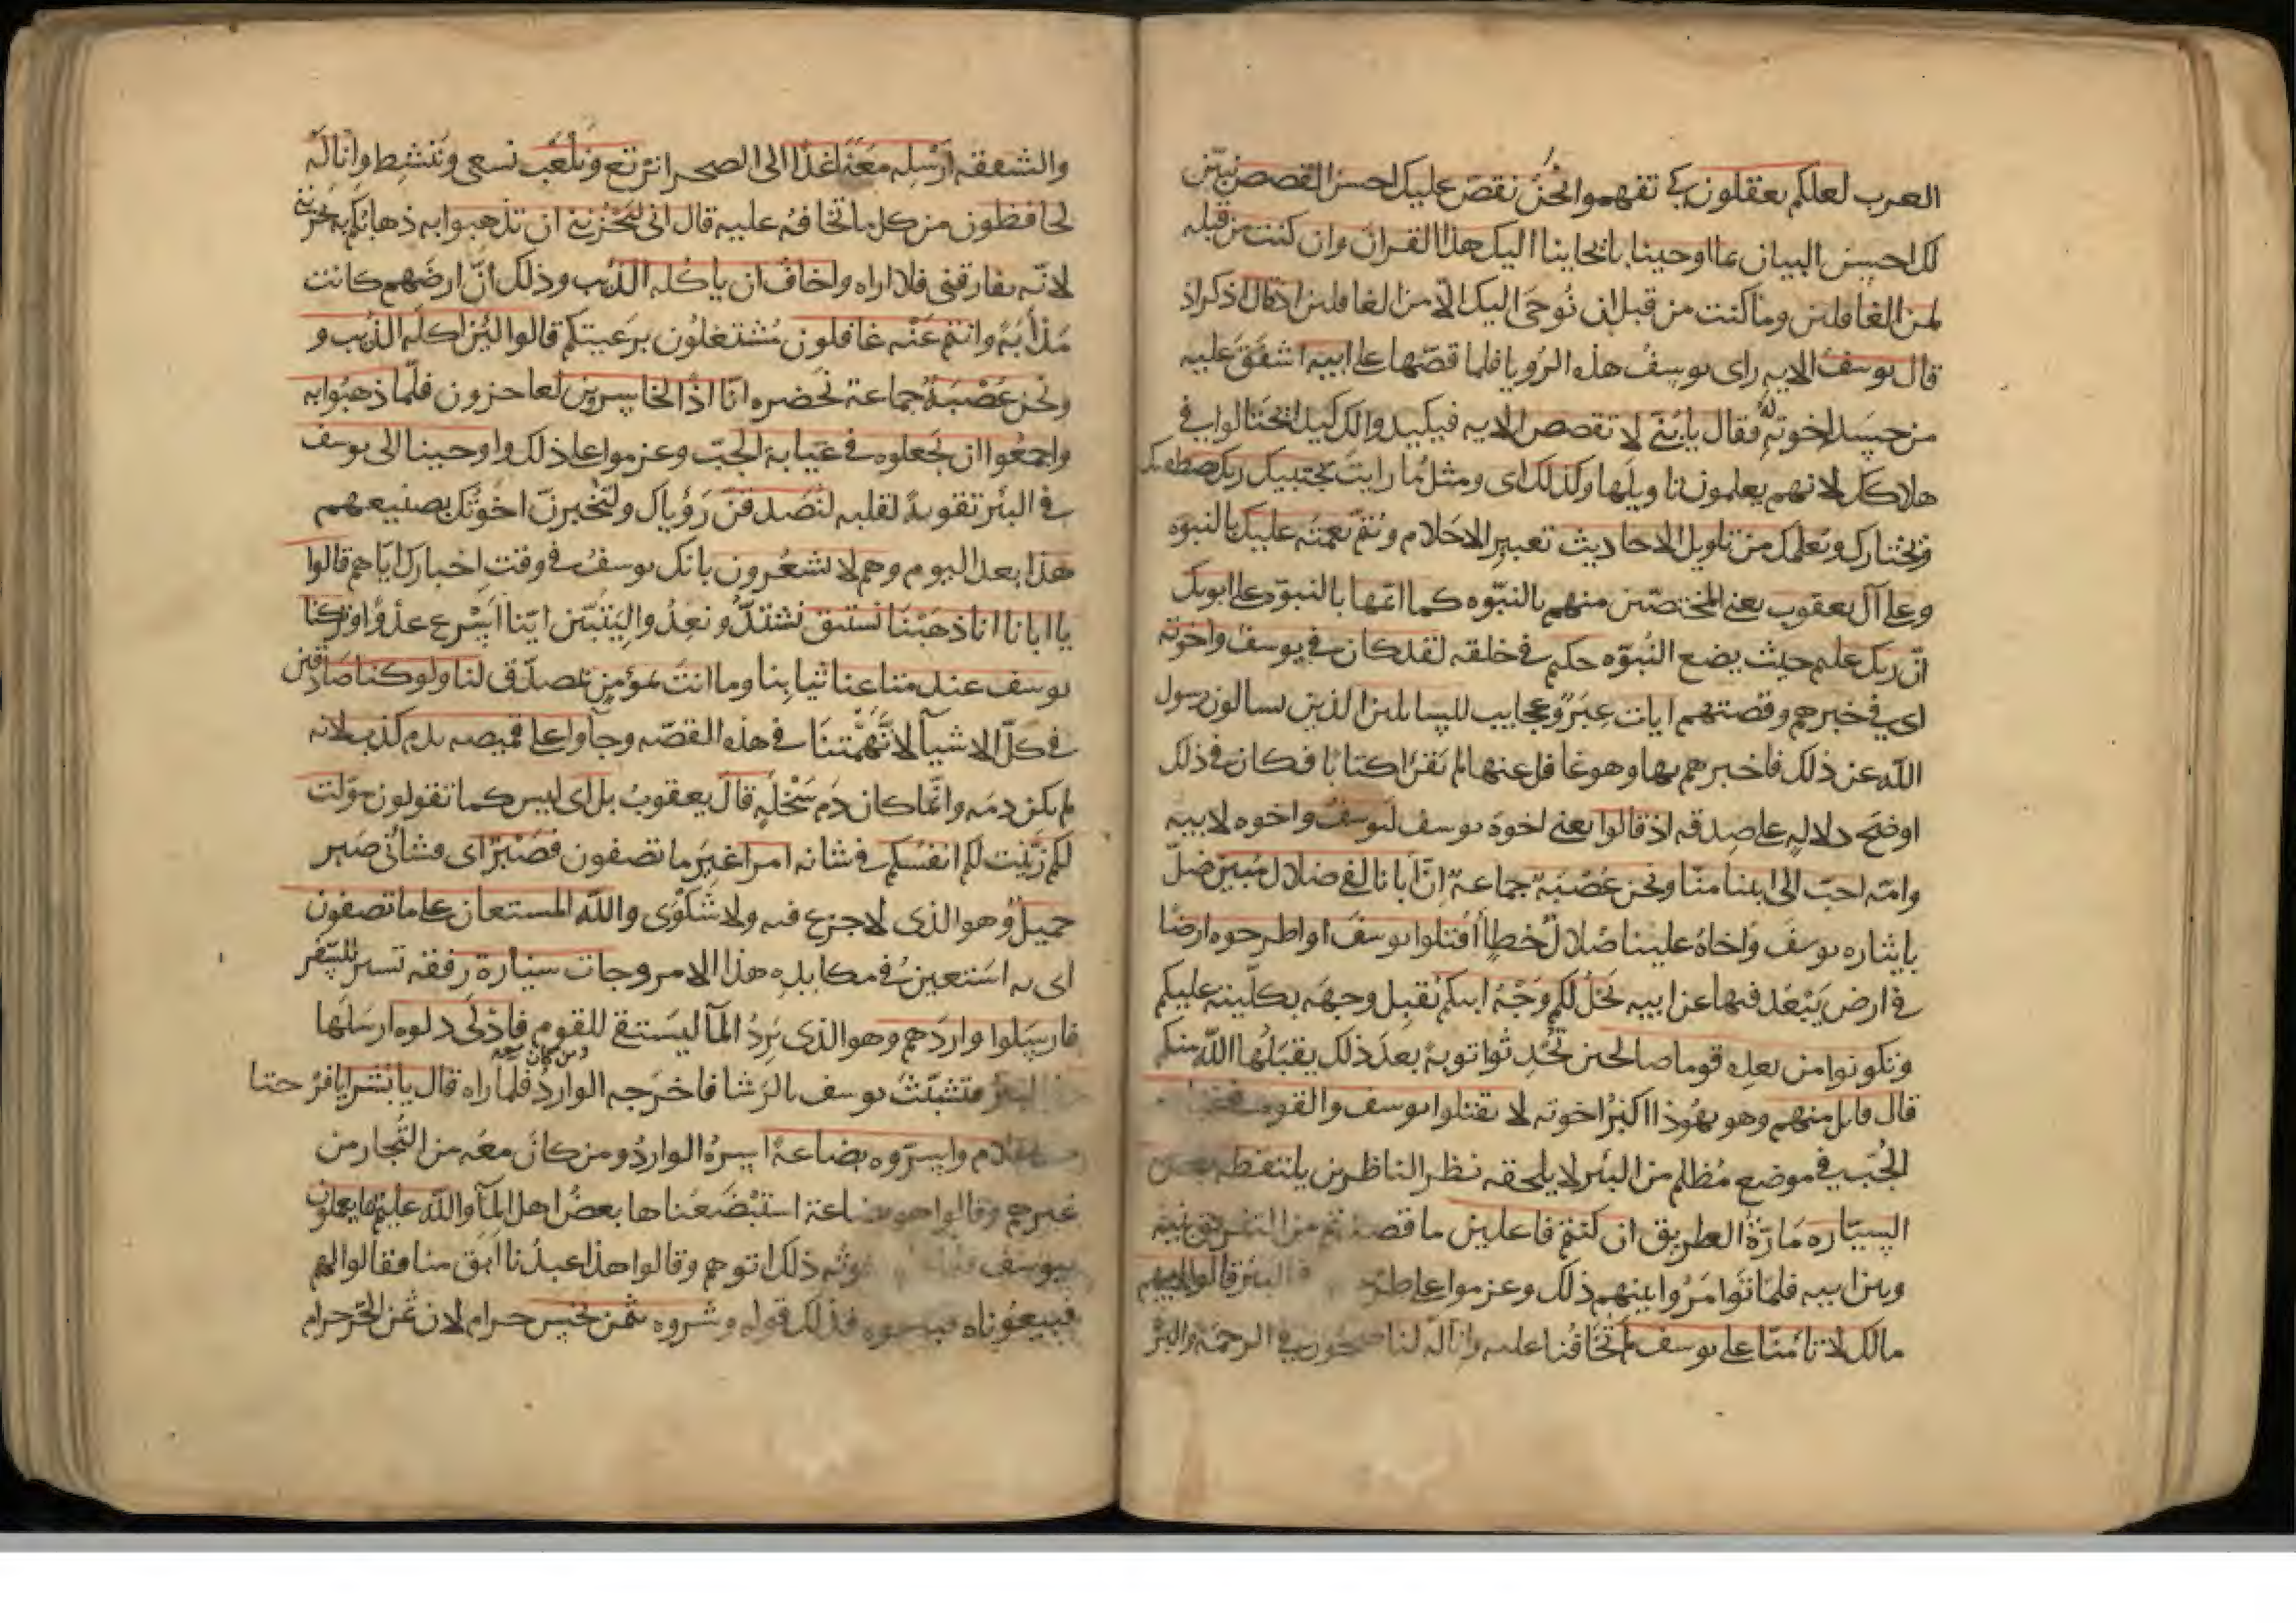 العرب لعلكم تعقلون كي تفهموا نحن نقص عليك احسن القصص نبيّن
لك احسن البيان بما اوحينا بايحاينا اليك هذا القران وان كنت من قبله
لمن الغافلين وما كنت من قبل ان نُوحى اليك الّا من الغافلين اذ قال اذكر اذ
قال يوسف الايه راى يوسفُ هذه الرُويا فلما قصّها على ابيه اشفَقَ عليه
من حسد اخوته له فقال يا بُنَيّ لا تقصص الايه فيكيدوا لك كيدا يحتالوا في
هلاكك لانهم يعلمون تاويلها وكذلك اى ومثل ما رايتَ يجتبيك ربك يصطفيك
ويختارك ويُعلمك من تاويل الاحاديث تعبير الاحلام ويُتمّ نعمتَه عليك بالنبوّه
وعلى آل يعقوب يعنى المختصّين منهم بالنبّوه كما اتمّها بالنبوّه على ابويك
انّ ربك عليم حيث يضع النُبوّه حكيم في خلقه لقد كان في يوسفَ واخوته
اى في خبرهم وقصتهم ايات عِبَرٌ وعجايب للسايلين الذين سالوا رسول
الله عن ذلك فاخبرهم بها وهو غافل عنها لم يَقرَا كتابا فكان في ذلك
اوضح دلالهٍ على صدقه اذ قالوا يعنى اخوة يوسف ليوسفُ واخوه لابيه
وامّه احبّ الى ابينا منّا ونحن عُصْبَةٌ جماعةٌ انّ ابانا لفي ضلال مُبين ضلّ
بايثاره يوسفَ وَاخاهُ علينا ضلالَ خطٍا اُقتلوا يوسفَ او اطرحوه ارضًا
في ارض يَبْعُد فيها عن ابيه يَخلُ لكم وَجْهُ ابيكم يُقبِل وجهَه بكلّيته عليكم
وتكونوا من بعدِه قوما صالحين تُحْدِثوا توبةً بعدَ ذلك يقبَلُها الله منكم
قال قايل منهم وهو يهُوذا اكبرُ اخوته لا تقتلوا يوسف والقوه في غيابت
الجُبّ في موضع مُظلم من البئر لا يلحقه نظر الناظرين يلتقطه بعض
السيّاره مَارّة الطريق ان كنتم فاعلين ما قصدتم من التفريق بَينَه
وبين ابيه فلمّا تَوامَرُوا بينهم ذلك وعزموا على طرحه في البئر قالوا لابيهم
مالك لا تامنّا على يوسف لم تخَافُنا عليه وانّا له لنا صحون في الرحمة والبرّ
والشفقه اَرْسِله معَنا غدًا الى الصحرا نَرْتع ونَلعَب نسعى ونَنشِط وانا لَه
لحافظون من كل ما تخافهُ عليه قال انى ليَحْزُنني ان تذهبوا به ذهابُكم به يحزنني
لانّه يفارقنى فلا اراه واخافُ ان ياكله الذّيب وذلك اَنّ ارضَهم كانت
مَذْاَبَةً وانتم عَنْه غافلون مُشتغلُون برَعيتكم قالوا لئِن اكله الذيب و
ونحن عُصْبَةٌ جماعة نحضره انّا اذًا لخاسرون لعاجزون فلّما ذهبُوا به
واجمَعُوا ان يجعلوه في غيَابة الجُبّ وعزموا على ذلك واوحينا الى يوسف
في البئر تقويةً لقلبه لتَصدقَنّ رؤياك ولتُخبرنّ اخوتَك بصنيعهم
هذا بعد اليوم وهم لا يشعُرون بانك يوسفُ في وقتِ اخبارك ايّاهم قالوا
يا ابانا انا ذهَبْنَا نستبق نشتدّ ونعدُوا ليَتَبيّن ايّنا اَسْرع عدْوًا وتركنا
يوسف عند متاعنا ثيابِنا وما انتَ بمؤمنٍ بمصدّق لنا ولو كنا صَادقين
في كلّ الاشيآ لاتَّهَمْتَنا في هذه القصّه وجآوا على قميصه بدم كذب لانه
لم يكن دمَه وانّما كان دَم سَخْلَةٍ قالَ يعقوبُ بل اى ليس كما تقولون سوّلت
لكم زَيّنت لكم انفسكم في شانه امرا غيرَ ما تصفون فصَبْرٌ اى فشأنى صَبر
جميلٌ وهو الذى لا جزع فيه ولا شَكْوَى والله المستعان على ما تصفون
اى به استعينُ في مكابدةِ هذا الامر وجات سيّارة رفقه تسير للسّفر
فارسَلوا واردَهم وهو الذى يَردُ المآ ليَستقى للقوم فادْلى دلوه ارسَلَها
في البئر فتشبّث يوسف بالرَشا فاخرَجه الوارد فلما راه قال يا بُشرَايا فرْحتا
هذا غلام واسَرّوه بضاعةً اسرّهُ الواردُ ومن كانَ معَه من التُجار من
غيرهم وقالوا هو بضاعة استبْضَعَناها بعضُ اهل المآ والله عليم بما يعملون
بيوسف فلما اخوتُه ذلك اتوهم وقالوا هذا عبدُنا اَبق منا فقالوا لهم
فبيعُوناه فباعوه فذلك قوله وشروه بثمن بخس حرام لان ثمن الحُرّ حرام